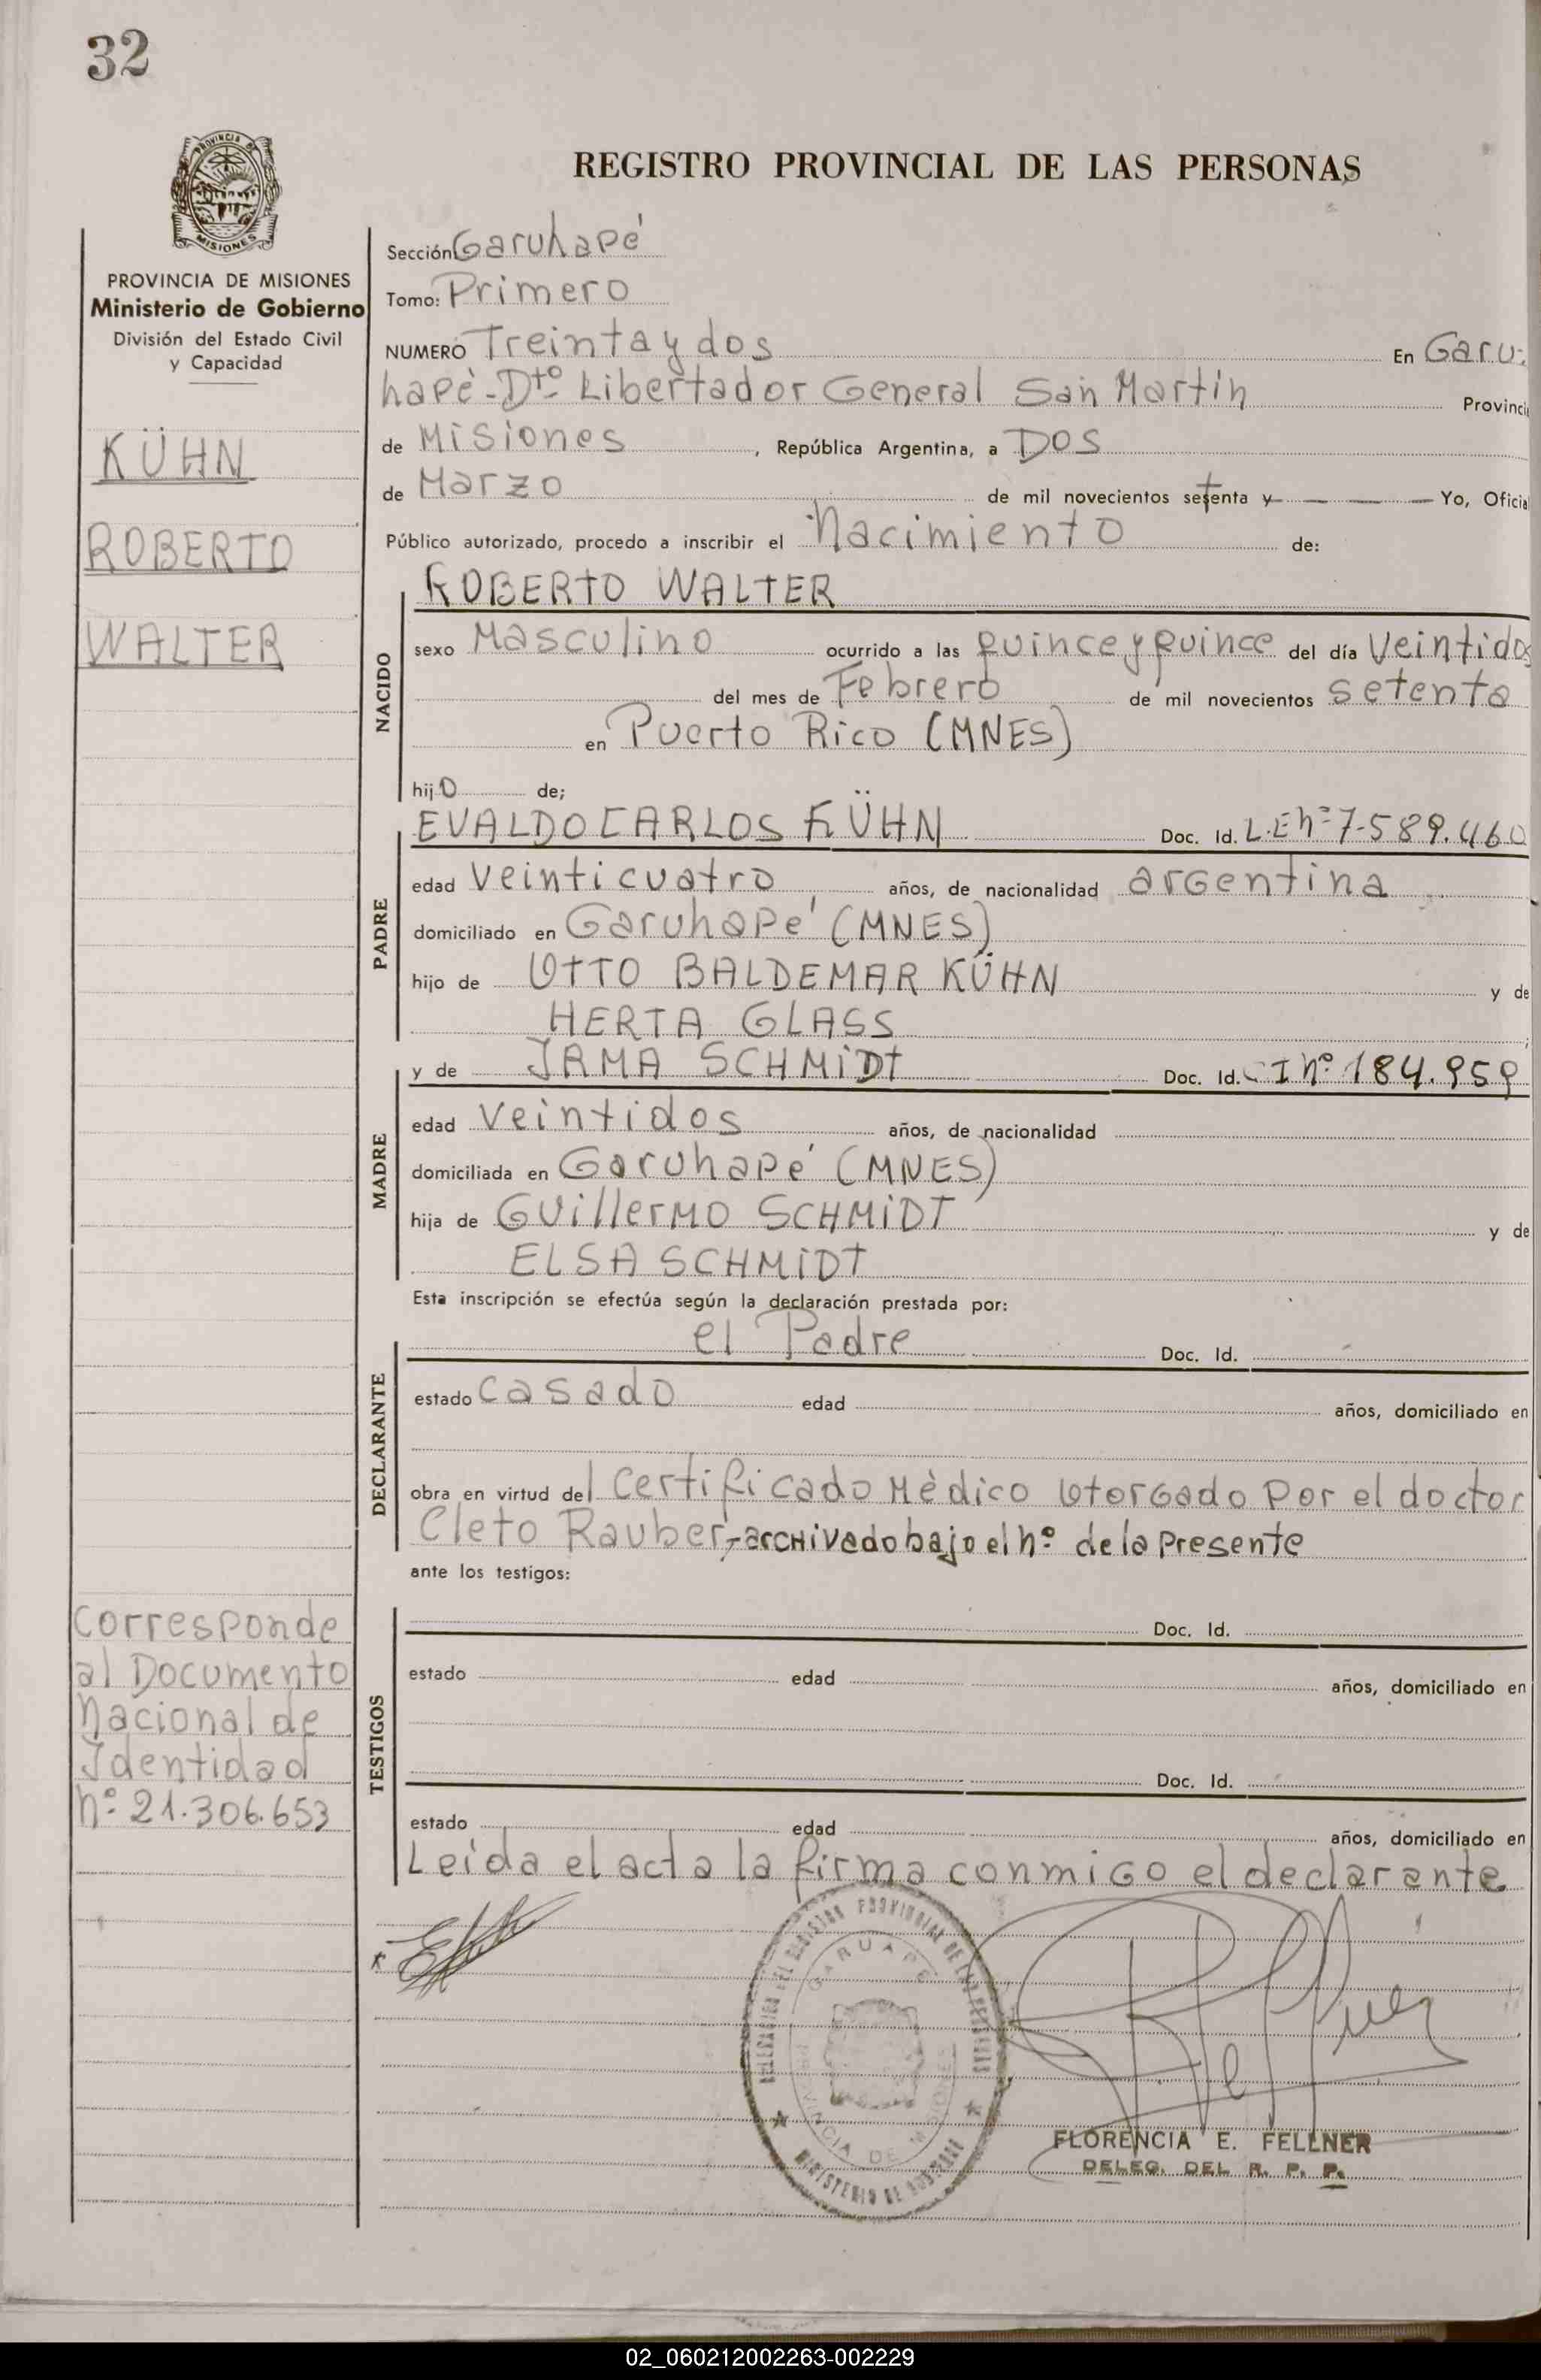 32
REGISTRO PROVINCIAL DE LAS PERSONAS
PROVINCIA DE MISIONES
MISIONES
PROVINCIA DE MISIONES
Ministerio de Gobierno
División del Estado Civil
y Capacidad
KÜHN
ROBERTO
WALTER
Sección Garuhapé
Tomo: Primero
NUMERO Treinta y dos En Garu-
hapé-Dto Libertador General San Martín Provinci
de Misiones, República Argentina, a Dos
de Marzo de mil novecientos setenta y — Yo, Oficial
Público autorizado, procedo a inscribir el Nacimiento de:
NACIDO
ROBERTO WALTER
sexo Masculino ocurrido a las quince y quince del día Veintidos
del mes de Febrero de mil novecientos setenta
en Puerto Rico (MNES)
hijo de;
PADRE
EVALDO CARLOS KÜHN Doc. Id. L.E nº 7.589.460
edad Veinticuatro años, de nacionalidad argentina
domiciliado en Garuhapé (MNES)
hijo de OTTO BALDEMAR KÜHN y de
HERTA GLASS;
MADRE
y de IRMA SCHMIDT Doc. Id. CI nº 184.959
edad Veintidos años, de nacionalidad
domiciliada en Garuhapé (MNES)
hija de Guillermo SCHMIDT y de
ELSA SCHMIDT
Esta inscripción se efectúa según la declaración prestada por:
DECLARANTE
el Padre Doc. Id.
estado casado edad años, domiciliado en
obra en virtud del Certificado Mèdico otorgado por el doctor
Cleto Rauber,-archivado bajo el nº de la presente
ante los testigos:
TESTIGOS
Doc. Id.
estado edad años, domiciliado en
Doc. Id.
estado edad años, domiciliado en
Leída el acta la firma conmigo el declarante
Corresponde
al Documento
Nacional de
Identidad
nº 21.306.653
DELEGACION DEL REGISTRO PROVINCIAL DE LAS PERSONAS
GARUAPE
PROVINCIA DE MISIONES
MINISTERIO DE GOBIERNO
FLORENCIA E. FELLNER
DELEG. DEL R. P. P.
02_060212002263-002229